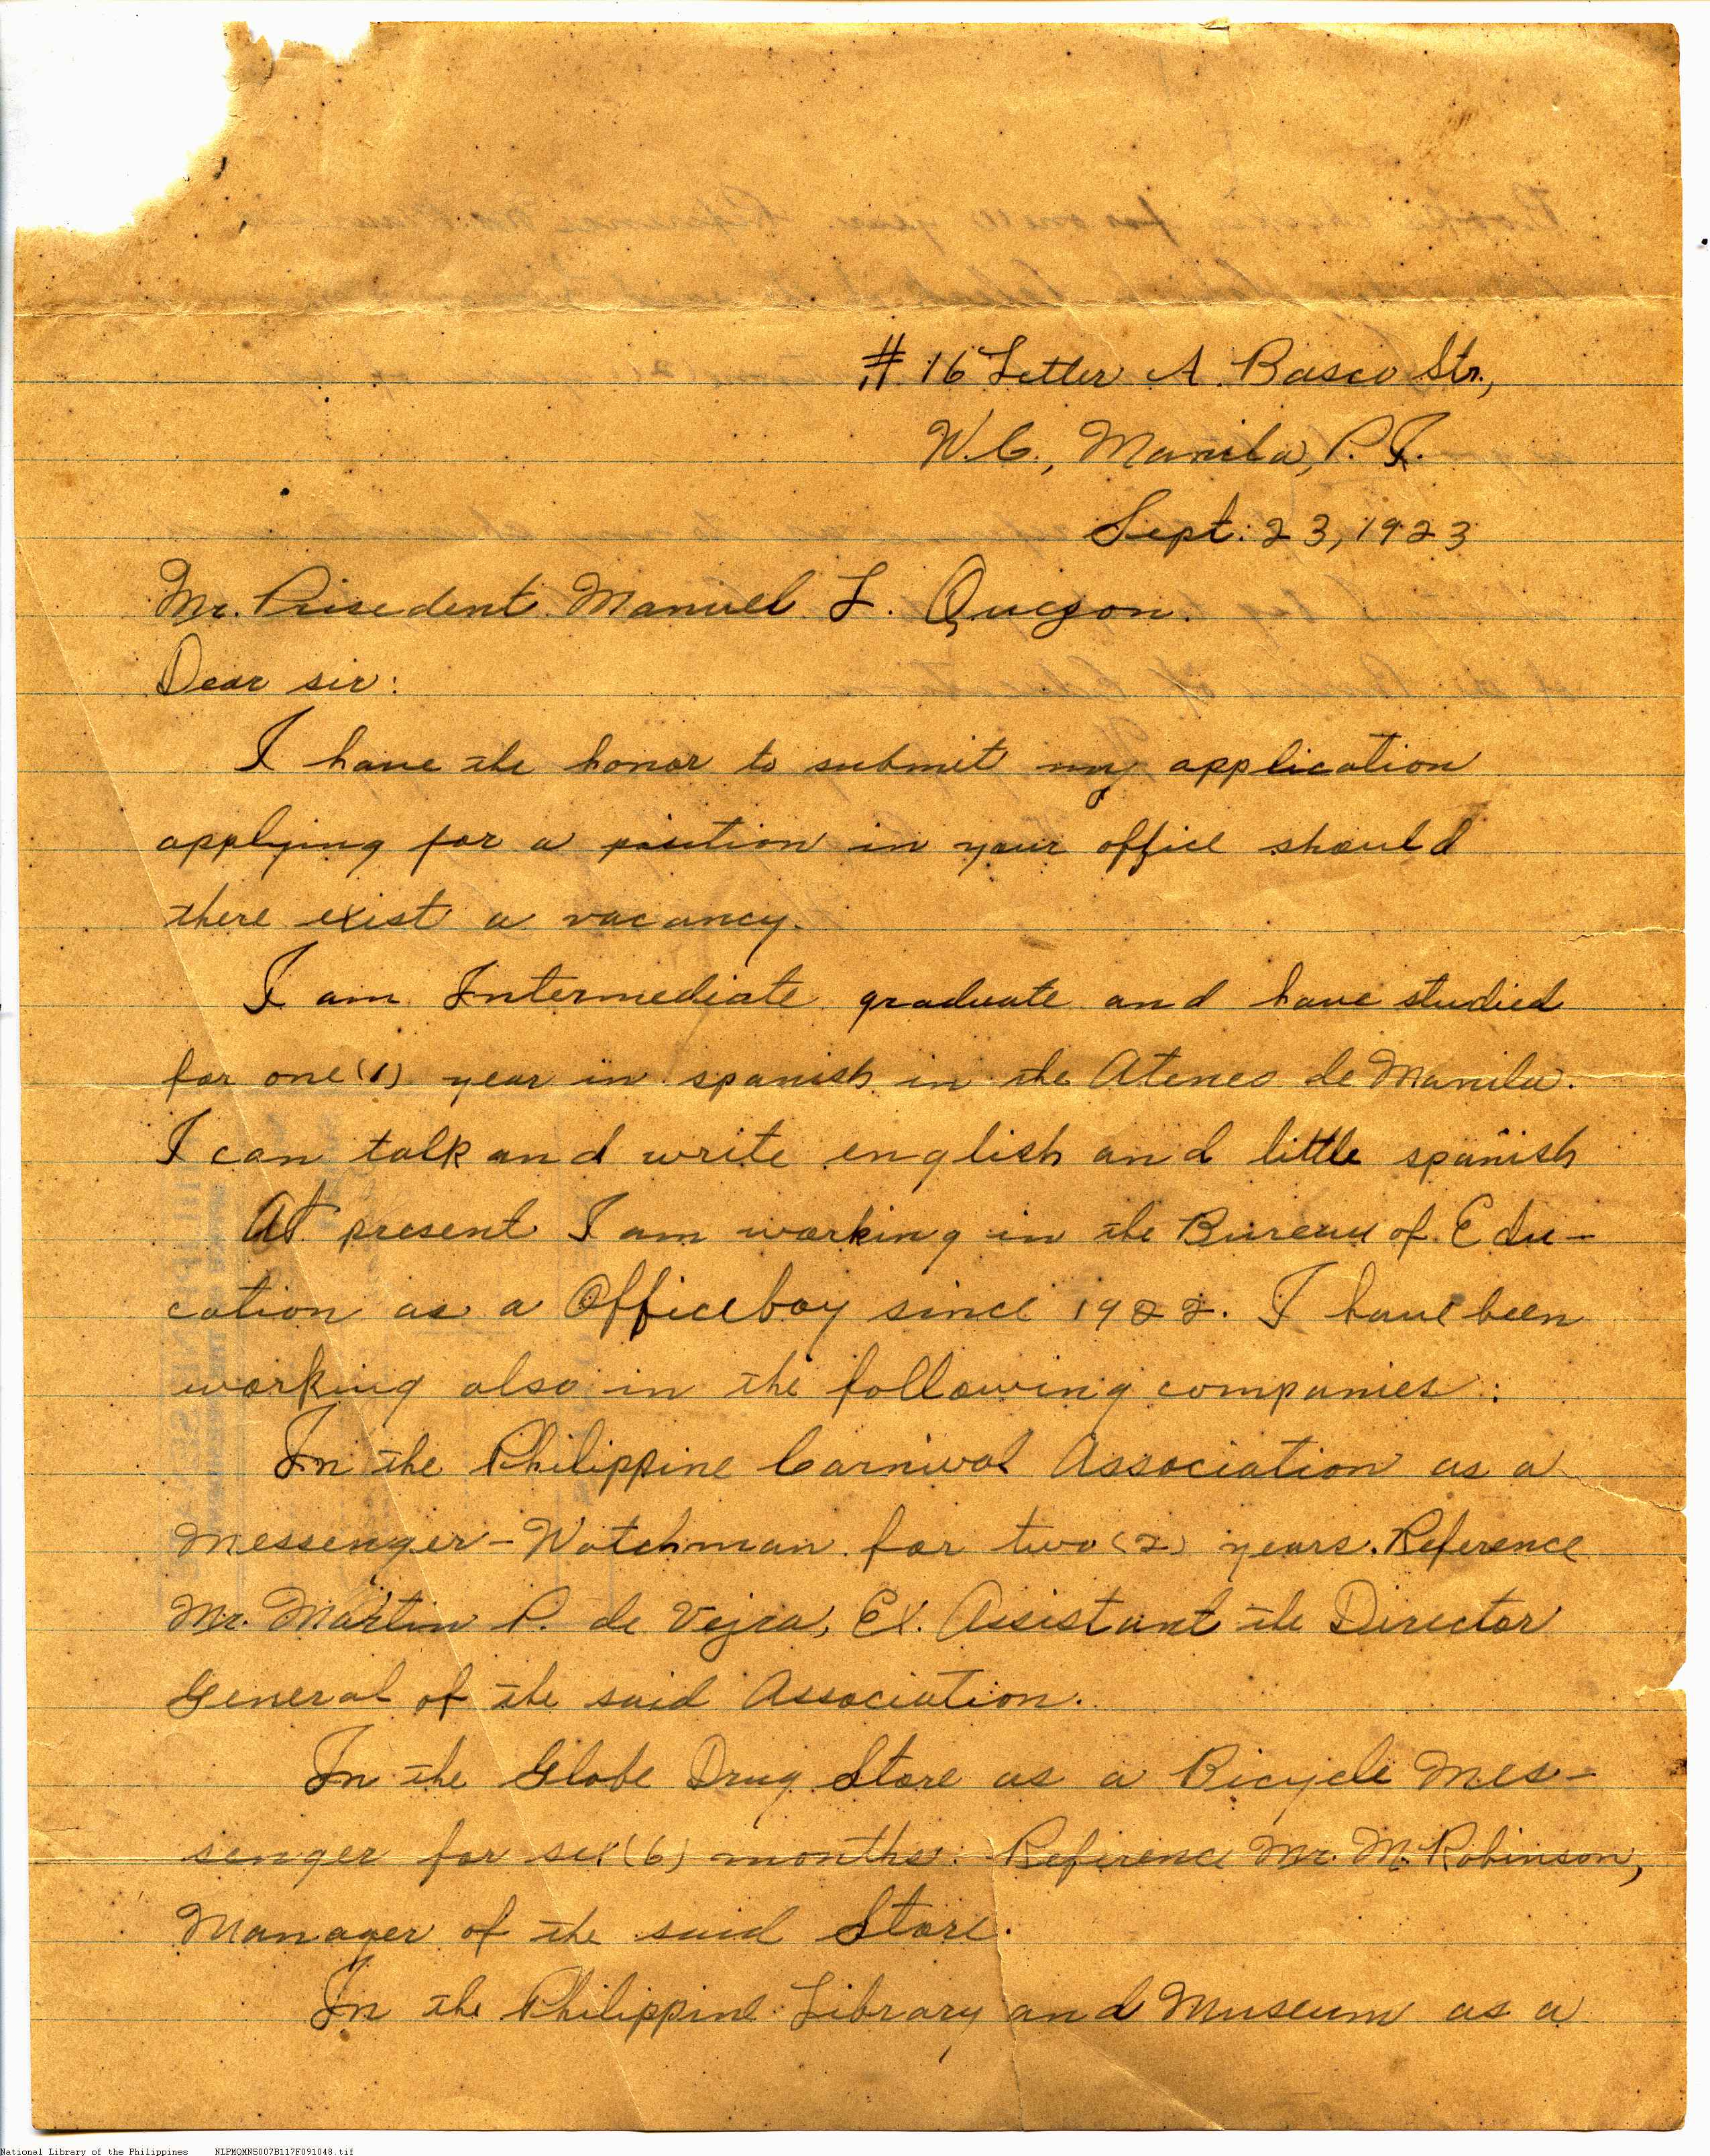 # 16 Letter A. Basco Str.,
W.C., Manila, P.I.
Sept. 23, 1923
Mr. Presedent Manuel L. Quezon.
Dear sir:
I have the honor to submit my application
applying for a position in your office should
there exist a vacancy.
I am Intermediate graduate and have studied
for one (1) year in spanish in the Ateneo de Manila.
I can talk and write english and little spanish
At present I am working in the Bureau of Edu-
cation as a Officeboy since 1922. I have been
working also in the following companies:
In the Philippine Carnival Association as a
Messenger-Watchman for two (2) years. Reference
Mr. Martin P. de Vejra, Ex. Assistant the Director
General of the said Association.
In the Globe Drug Store as a Bicycle Mes-
senger for six (6) months. Reference Mr. M. Robinson,
Manager of the said Store.
In the Philippine Library and Museum as a
National Library of the Philippines NLPMQMNS007B117F091048.tif